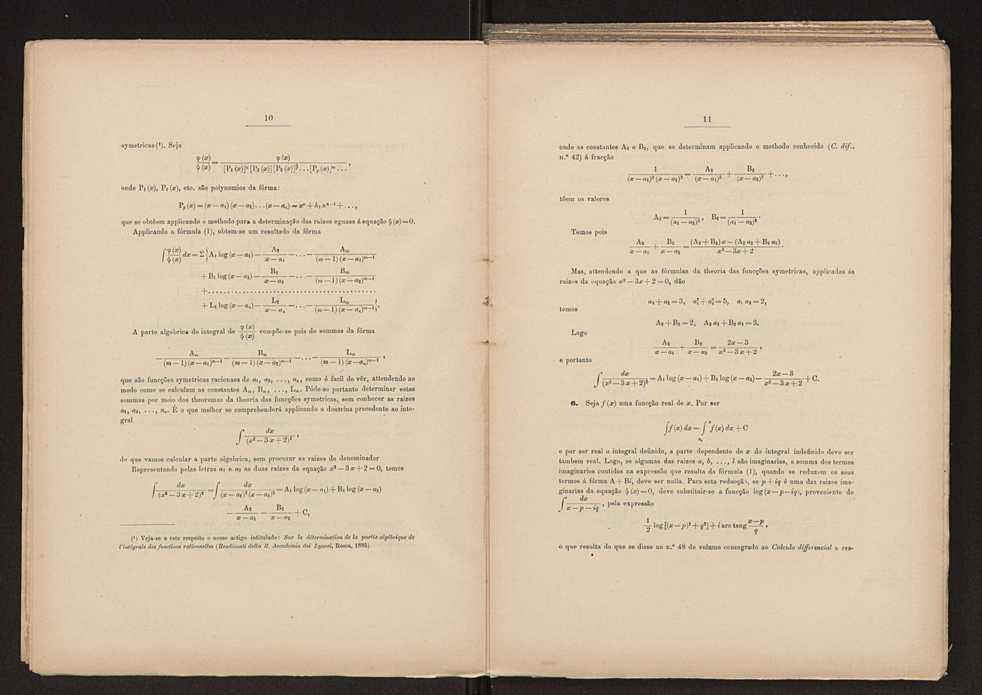 10
symetricas (¹). Seja
φ (x) / ψ (x) = φ (x) / [P₁ (x)]ᵅ [P₂ (x)] [P₃ (x)] . . . [Pₚ (x)]ᵐ . . . ,
onde P₁ (x), P₂ (x), etc. são polynomios da fórma:
Pₚ (x) = (x — a₁) (x — a₂) . . . (x — aₙ) = xⁿ + k₁ xⁿ⁻¹ + . . .,
que se obtêem applicando o methodo para a determinação das raizes eguaes á equação ψ (x) = 0.
Applicando a fórmula (1), obtem-se um resultado da fórma
∫ φ (x) / ψ (x) dx = Σ { A₁ log (x — a₁) — A₂ / (x — a₁) — . . . — Aₘ / (m — 1) (x — a₁)ᵐ⁻¹
+ B₁ log (x — a₂) — B₂ / (x — a₂) — . . . — Bₘ / (m — 1) (x — a₂)ᵐ⁻¹
+ . . . . . . . . . . . . . . . . . . . . . . . . . . . . . .
+ L₁ log (x — aₙ) — L₂ / (x — aₙ) — . . . — Lₘ / (m — 1) (x — aₙ)ᵐ⁻¹ } .
A parte algebrica do integral de φ (x) / ψ (x) compõe-se pois de sommas da fórma
— Aₘ / (m — 1) (x — a₁)ᵐ⁻¹ — Bₘ / (m — 1) (x — a₂)ᵐ⁻¹ — . . . — Lₘ / (m — 1) (x — aₙ)ᵐ⁻¹ ,
que são funcções symetricas racionaes de a₁, a₂, . . ., aₙ, como é facil de vêr, attendendo ao
modo como se calculam as constantes Aₘ, Bₘ, . . ., Lₘ. Póde-se portanto determinar estas
sommas por meio dos theoremas da theoria das funcções symetricas, sem conhecer as raizes
a₁, a₂, . . ., aₙ. É o que melhor se comprehenderá applicando a doutrina precedente ao inte-
gral
∫ dx / (x² — 3 x + 2)² ,
de que vamos calcular a parte algebrica, sem procurar as raizes do denominador
Representando pelas letras a₁ e a₂ as duas raizes da equação x² — 3 x + 2 = 0, temos
∫ dx / (x² — 3 x + 2)² = ∫ dx / (x — a₁)² (x — a₂)² = A₁ log (x — a₁) + B₁ log (x — a₂)
— A₂ / (x — a₁) — B₂ / (x — a₂) + C,
(¹) Veja-se a este respeito o nosso artigo intitulado: Sur la détermination de la partie algébrique de
l'intégrale des fonctions rationnelles (Rendiconti della R. Accademia dei Lyncei, Roma, 1885).
11
onde as constantes A₂ e B₂, que se determinam applicando o methodo conhecido (C. dif.,
n.º 42) á fracção
1 / (x — a₁)² (x — a₂)² = A₂ / (x — a₁)² + B₂ / (x — a₂)² + . . . ,
têem os valores
A₂ = 1 / (a₁ — a₂)² , B₂ = 1 / (a₁ — a₂)² .
Temos pois
A₂ / (x — a₁) + B₂ / (x — a₂) = (A₂ + B₂) x — (A₂ a₂ + B₂ a₁) / x² — 3x + 2 .
Mas, attendendo a que as fórmulas da theoria das funcções symetricas, applicadas ás
raizes da equação x² — 3x + 2 = 0, dão
a₁ + a₂ = 3, a₁² + a₂² = 5, a₁ a₂ = 2,
temos
A₂ + B₂ = 2, A₂ a₂ + B₂ a₁ = 3,
Logo
A₂ / (x — a₁) + B₂ / (x — a₂) = 2x — 3 / x² — 3 x + 2 ,
e portanto
∫ dx / (x² — 3 x + 2)² = A₁ log (x — a₁) + B₁ log (x — a₂) — 2x — 3 / x² — 3 x + 2 + C.
6. Seja f (x) uma funcção real de x. Por ser
∫ f (x) dx = ∫ f (x) dx + C
e por ser real o integral definido, a parte dependente de x do integral indefinido deve ser
tambem real. Logo, se algumas das raizes a, b, . . ., l são imaginarias, a somma dos termos
imaginarios contidos na expressão que resulta da fórmula (1), quando se reduzem os seus
termos á fórma A + Bi, deve ser nulla. Para esta reducção, se p + iq é uma das raizes ima-
ginarias da equação ψ (x) = 0, deve substituir-se a funcção log (x — p — iq), proveniente de
∫ dx / x — p — iq , pela expressão
1/2 log [(x — p)² + q²] + i arc tang x — p / q ,
o que resulta do que se disse no n.º 48 do volume consagrado ao Calculo differencial e res-